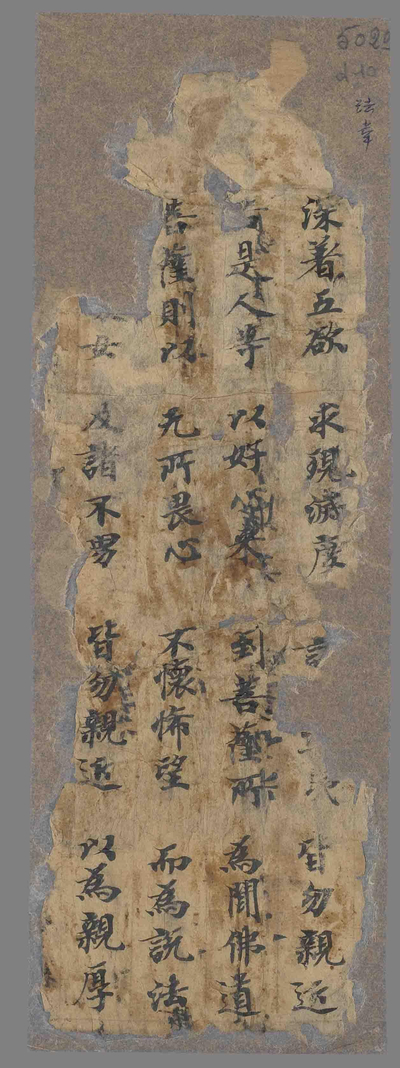 法華
深著五欲 求現滅度 皆勿親近
是人等 以好心來 到菩薩所 為聞佛道
菩薩則以 无所畏心 不懷悕望 而為說法
女 及諸不男 皆勿親近 以為親厚